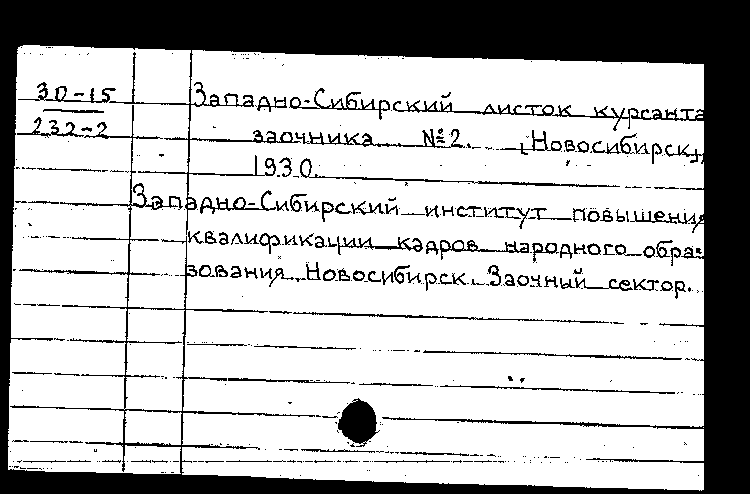 30-15
232-2
Западно-Сибирский листок курсанта
заочника № 2. [Новосибирск],
1930.
Западно-Сибирский институт повышения
квалификации кадров народного обра-
зования, Новосибирск. Заочный сектор.